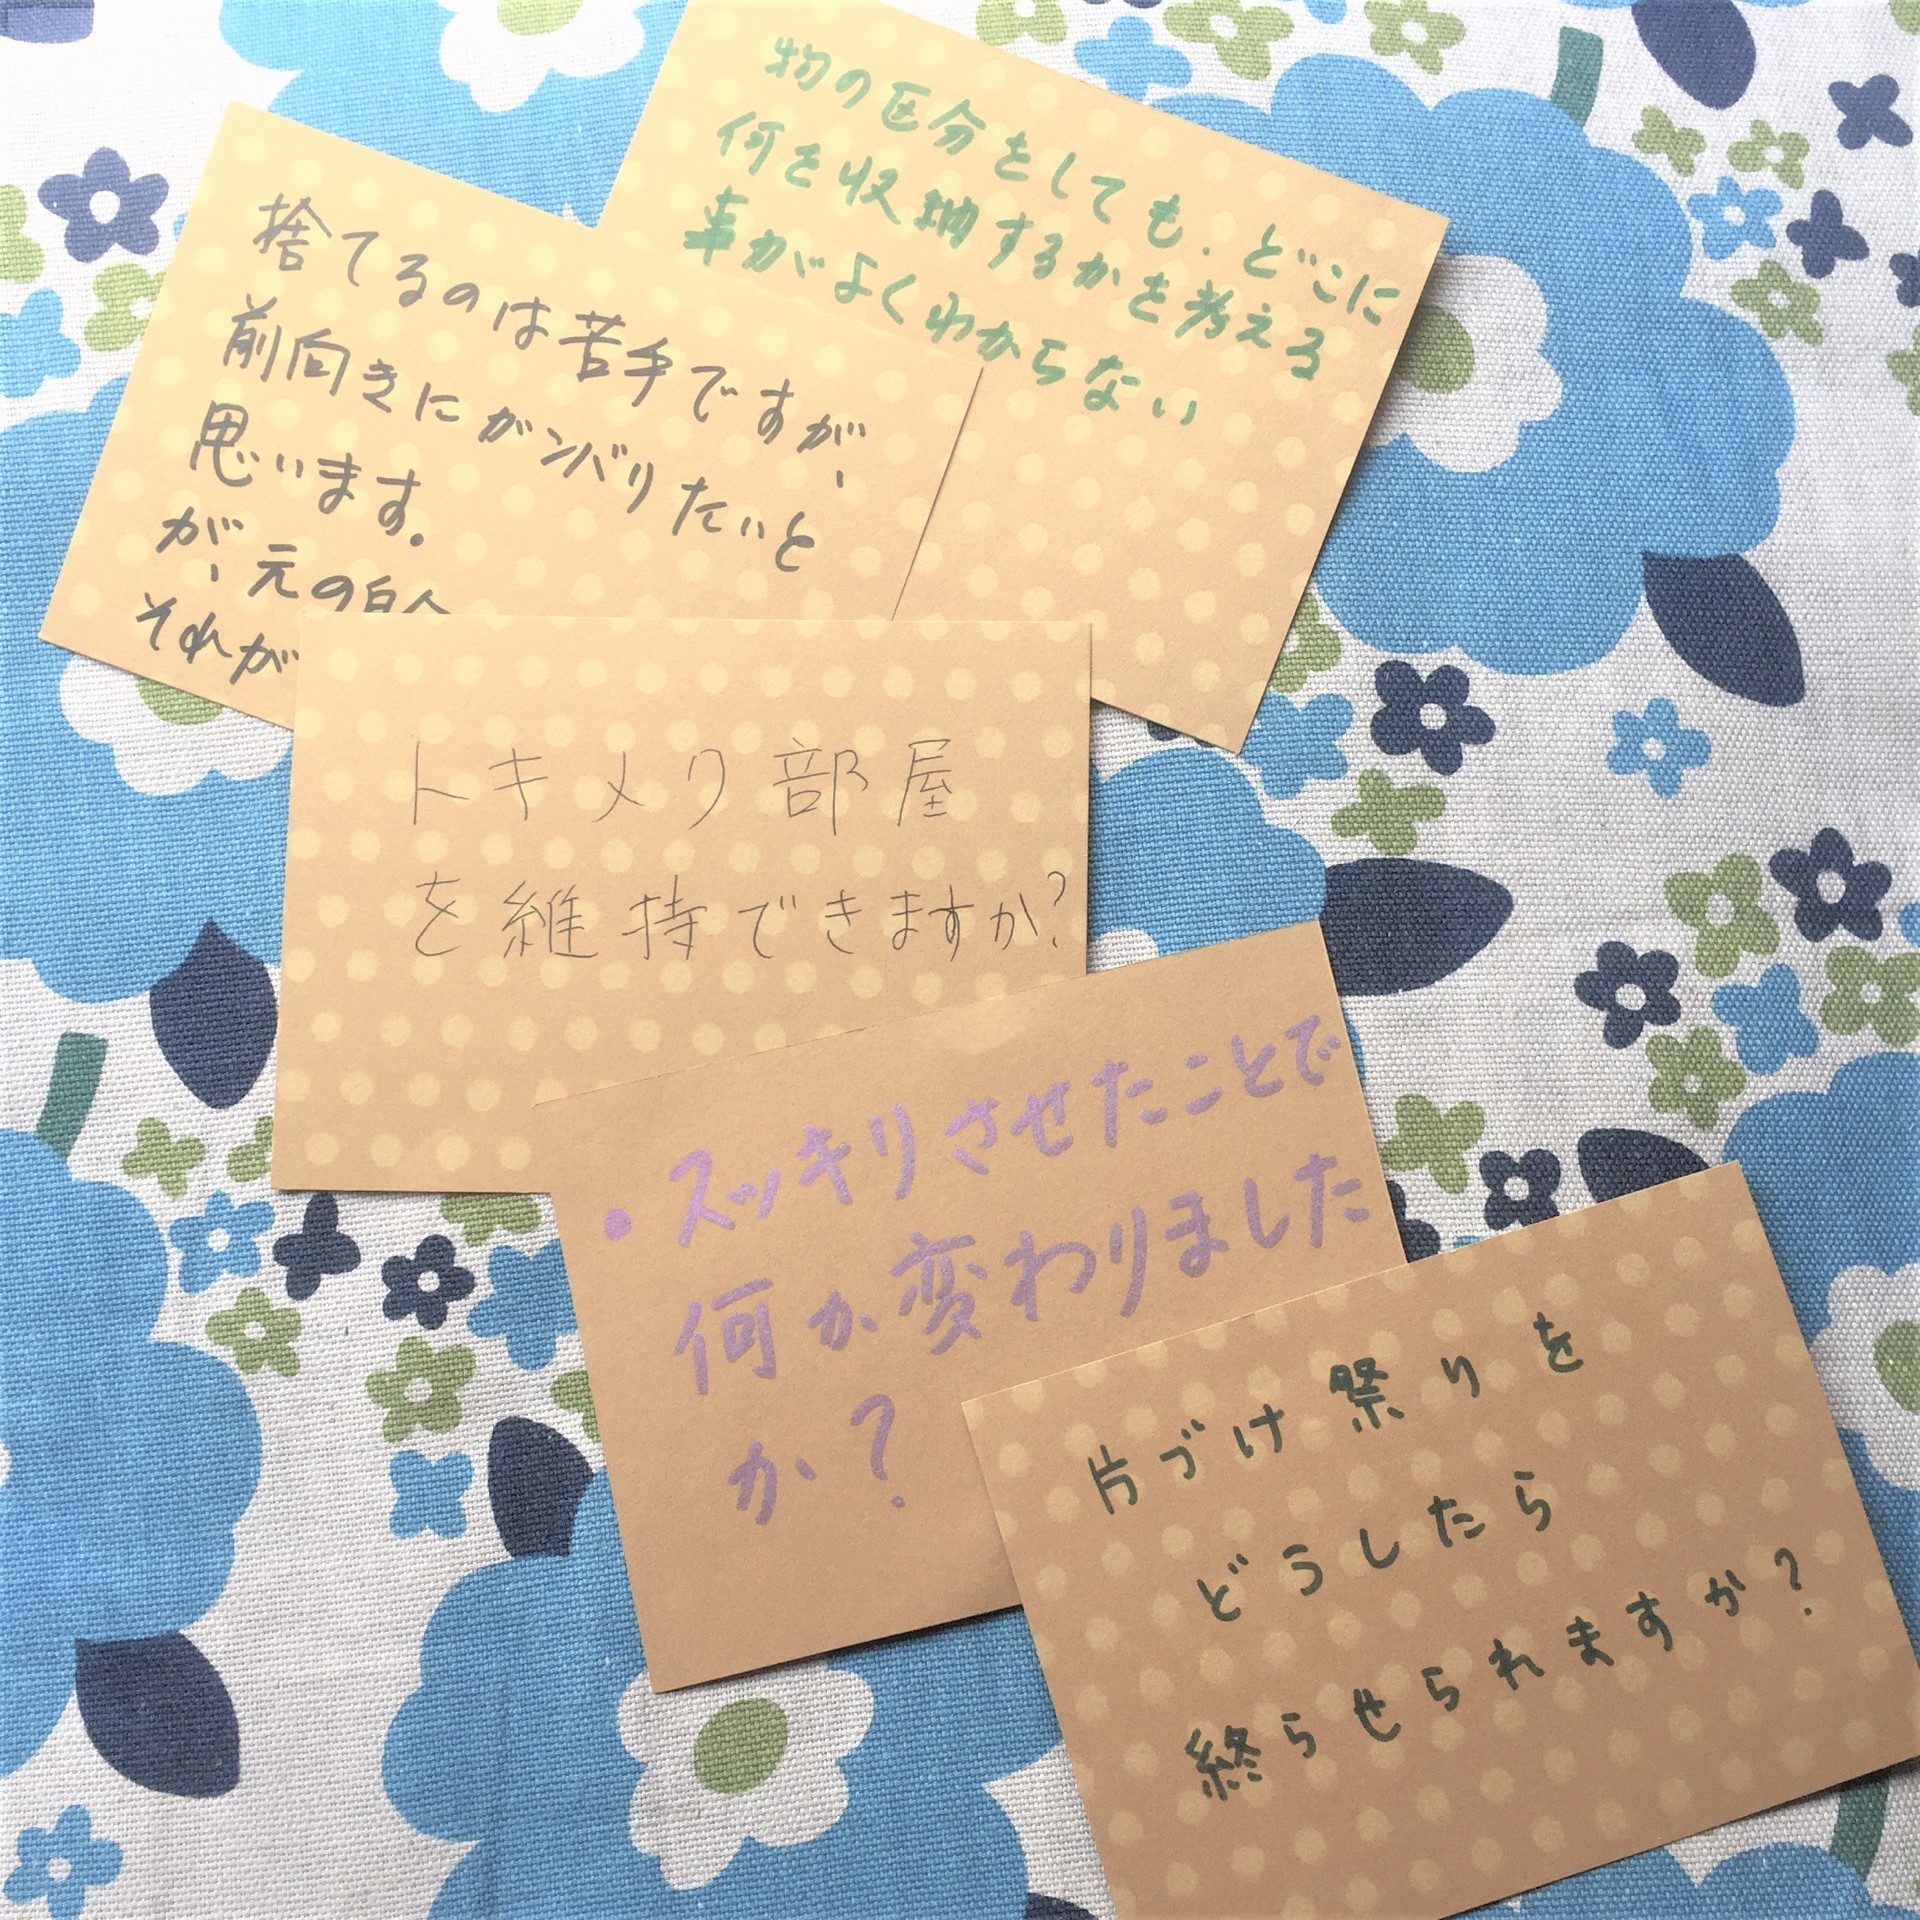 物の区分をしても、どこに
何を収納するかを考える
事がよくわからない
捨てるのは苦手ですが、
前向きにガンバリたいと
思います。
が、元の
それが
トキメク部屋
を維持できますか?
・スッキリさせたことで
何か変わりました
か?
片づけ祭りを
どうしたら
終らせられますか?